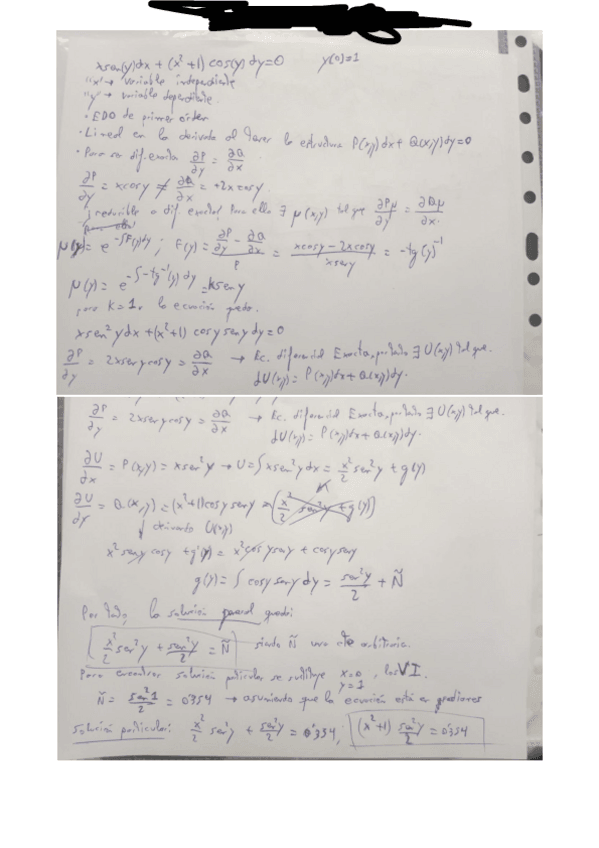 xsen(y)dx + (x²+1) cos(y) dy=0 y(0)=1
"x" → variable independiente
"y" → variable dependiente.
· EDO de primer orden
· Lineal en la derivada al tener la estructura P(x,y)dx + Q(x,y)dy=0
· Para ser dif. exacta ∂P/∂y = ∂Q/∂x
∂P/∂y = xcosy ≠ ∂Q/∂x = +2xcosy
¿reducible a dif. exacta? Para ello ∃ μ(x,y) tal que ∂Pμ/∂y = ∂Qμ/∂x.
μ(y) = e^(-∫F(y)dy) ; F(y) = (∂P/∂y - ∂Q/∂x)/P = (xcosy - 2xcosy)/(xseny) = -tg(y)⁻¹
μ(y) = e^(-∫-tg⁻¹(y)dy) = kseny
para K=1, la ecuación queda.
xsen²ydx + (x²+1) cosy seny dy=0
∂P/∂y = 2xsenycosy = ∂Q/∂x → Ec. diferencial Exacta, por tanto ∃ U(x,y) tal que.
dU(x,y) = P(x,y)dx + Q(x,y)dy.
∂P/∂y = 2xsenycosy = ∂Q/∂x → Ec. diferencial Exacta, por tanto ∃ U(x,y) tal que.
dU(x,y) = P(x,y)dx + Q(x,y)dy.
∂U/∂x = P(x,y) = xsen²y → U = ∫xsen²y dx = x²/2 sen²y + g(y)
∂U/∂y = Q(x,y) = (x²+1)cosy seny = (x²/2 sen²y + g(y))
↓ derivando U(x,y)
x² seny cosy + g'(y) = x²cosy seny + cosy seny
g(y) = ∫ cosy seny dy = sen²y/2 + Ñ
Por tanto, la solución general queda:
x²/2 sen²y + sen²y/2 = Ñ siendo Ñ una cte arbitraria.
Para encontrar solución particular se sustituye x=0 y=1, los VI.
Ñ = sen²1/2 = 0'354 → asumiendo que la ecuación está en radianes
solución particular: x²/2 sen²y + sen²y/2 = 0'354; (x²+1) sen²y/2 = 0'354